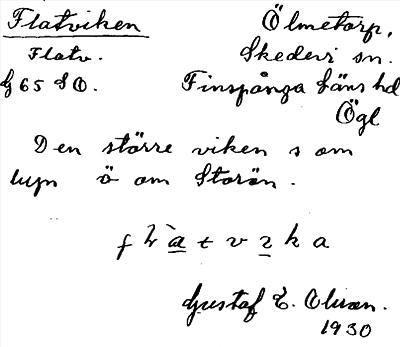 Flatviken Ölmetorp,
Flatv. Skedevi sn.
G 65 SO. Finspånga läns hd
Ögl
Den större viken som
ö om Storön.
Gustaf E.
1930